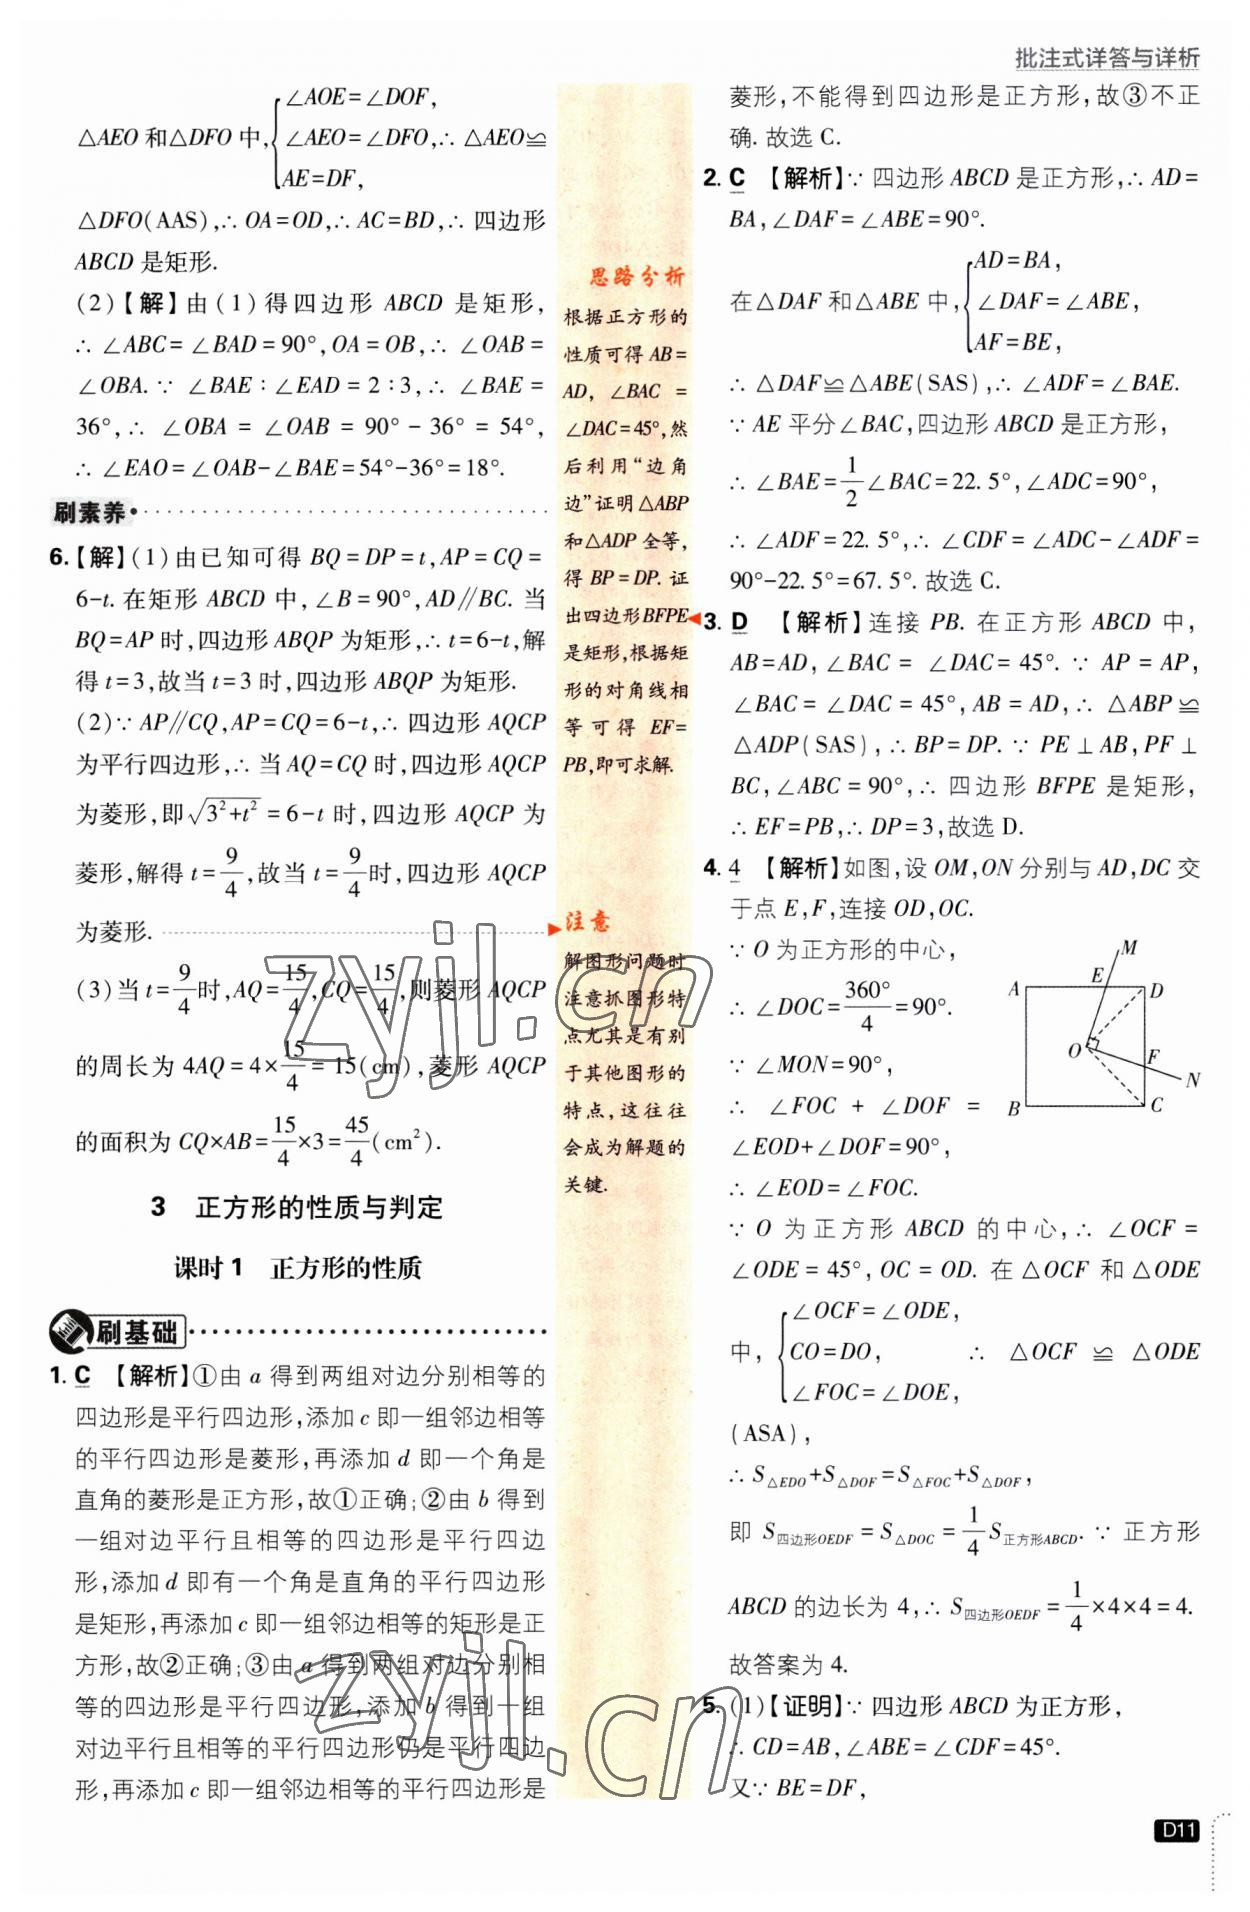 批注式详答与详析
△AEO 和△DFO 中, {∠AOE=∠DOF,
∠AEO=∠DFO, ∴ △AEO≌
AE=DF,
△DFO(AAS),∴ OA=OD,∴ AC=BD,∴ 四边形
ABCD 是矩形.
(2)【解】由(1)得四边形 ABCD 是矩形,
∴ ∠ABC=∠BAD=90°,OA=OB,∴ ∠OAB=
∠OBA. ∵ ∠BAE∶∠EAD=2∶3,∴ ∠BAE=
36°,∴ ∠OBA=∠OAB=90°-36°=54°,
∴ ∠EAO=∠OAB-∠BAE=54°-36°=18°.
刷素养
6.【解】(1)由已知可得 BQ=DP=t,AP=CQ=
6-t. 在矩形 ABCD 中,∠B=90°,AD∥BC. 当
BQ=AP 时,四边形 ABQP 为矩形,∴ t=6-t,解
得 t=3,故当 t=3 时,四边形 ABQP 为矩形.
(2)∵ AP∥CQ,AP=CQ=6-t,∴ 四边形 AQCP
为平行四边形,∴ 当 AQ=CQ 时,四边形 AQCP
为菱形,即√(3²+t²)=6-t 时,四边形 AQCP 为
菱形,解得 t=9/4,故当 t=9/4时,四边形 AQCP
为菱形.
(3)当 t=9/4时,AQ=15/4,CQ=15/4,则菱形 AQCP
的周长为 4AQ=4×15/4=15(cm),菱形 AQCP
的面积为 CQ×AB=15/4×3=45/4(cm²).
3 正方形的性质与判定
课时1 正方形的性质
刷基础
1. C 【解析】①由 a 得到两组对边分别相等的
四边形是平行四边形,添加 c 即一组邻边相等
的平行四边形是菱形,再添加 d 即一个角是
直角的菱形是正方形,故①正确;②由 b 得到
一组对边平行且相等的四边形是平行四边
形,添加 d 即有一个角是直角的平行四边形
是矩形,再添加 c 即一组邻边相等的矩形是正
方形,故②正确;③由 a 得到两组对边分别相
等的四边形是平行四边形,添加 b 得到一组
对边平行且相等的平行四边形仍是平行四边
形,再添加 c 即一组邻边相等的平行四边形是
思路分析
根据正方形的
性质可得 AB=
AD, ∠BAC =
∠DAC=45°,然
后利用“边角
边”证明△ABP
和△ADP 全等,
得 BP=DP. 证
出四边形BFPE
是矩形,根据矩
形的对角线相
等可得 EF=
PB,即可求解.
注意
解图形问题时
注意抓图形特
点尤其是有别
于其他图形的
特点,这往往
会成为解题的
关键.
菱形,不能得到四边形是正方形,故③不正
确. 故选 C.
2. C 【解析】∵ 四边形 ABCD 是正方形,∴ AD=
BA,∠DAF=∠ABE=90°.
在△DAF 和△ABE 中, {AD=BA,
∠DAF=∠ABE,
AF=BE,
∴ △DAF≌△ABE(SAS),∴ ∠ADF=∠BAE.
∵ AE 平分∠BAC,四边形 ABCD 是正方形,
∴ ∠BAE=1/2∠BAC=22.5°,∠ADC=90°,
∴ ∠ADF=22.5°,∴ ∠CDF=∠ADC-∠ADF=
90°-22.5°=67.5°. 故选 C.
3. D 【解析】连接 PB. 在正方形 ABCD 中,
AB=AD,∠BAC= ∠DAC=45°. ∵ AP=AP,
∠BAC=∠DAC=45°,AB=AD,∴ △ABP≌
△ADP(SAS),∴ BP=DP. ∵ PE⊥AB,PF⊥
BC,∠ABC=90°,∴ 四边形 BFPE 是矩形,
∴ EF=PB,∴ DP=3,故选 D.
4. 4 【解析】如图,设 OM,ON 分别与 AD,DC 交
于点 E,F,连接 OD,OC.
∵ O 为正方形的中心,
∴ ∠DOC=360°/4=90°.
∵ ∠MON=90°,
∴ ∠FOC + ∠DOF =
∠EOD+∠DOF=90°,
∴ ∠EOD=∠FOC.
M
E
A
D
O
F
N
B
C
∵ O 为正方形 ABCD 的中心,∴ ∠OCF=
∠ODE=45°,OC=OD. 在△OCF 和△ODE
中, {∠OCF=∠ODE,
CO=DO, ∴ △OCF ≌ △ODE
∠FOC=∠DOE,
(ASA),
∴ S△EDO+S△DOF=S△FOC+S△DOF,
即 S四边形OEDF=S△DOC=1/4S正方形ABCD. ∵ 正方形
ABCD 的边长为 4,∴ S四边形OEDF=1/4×4×4=4.
故答案为 4.
5. (1)【证明】∵ 四边形 ABCD 为正方形,
∴ CD=AB,∠ABE=∠CDF=45°.
又∵ BE=DF,
D11
zyjl.cn
zyjl.cn